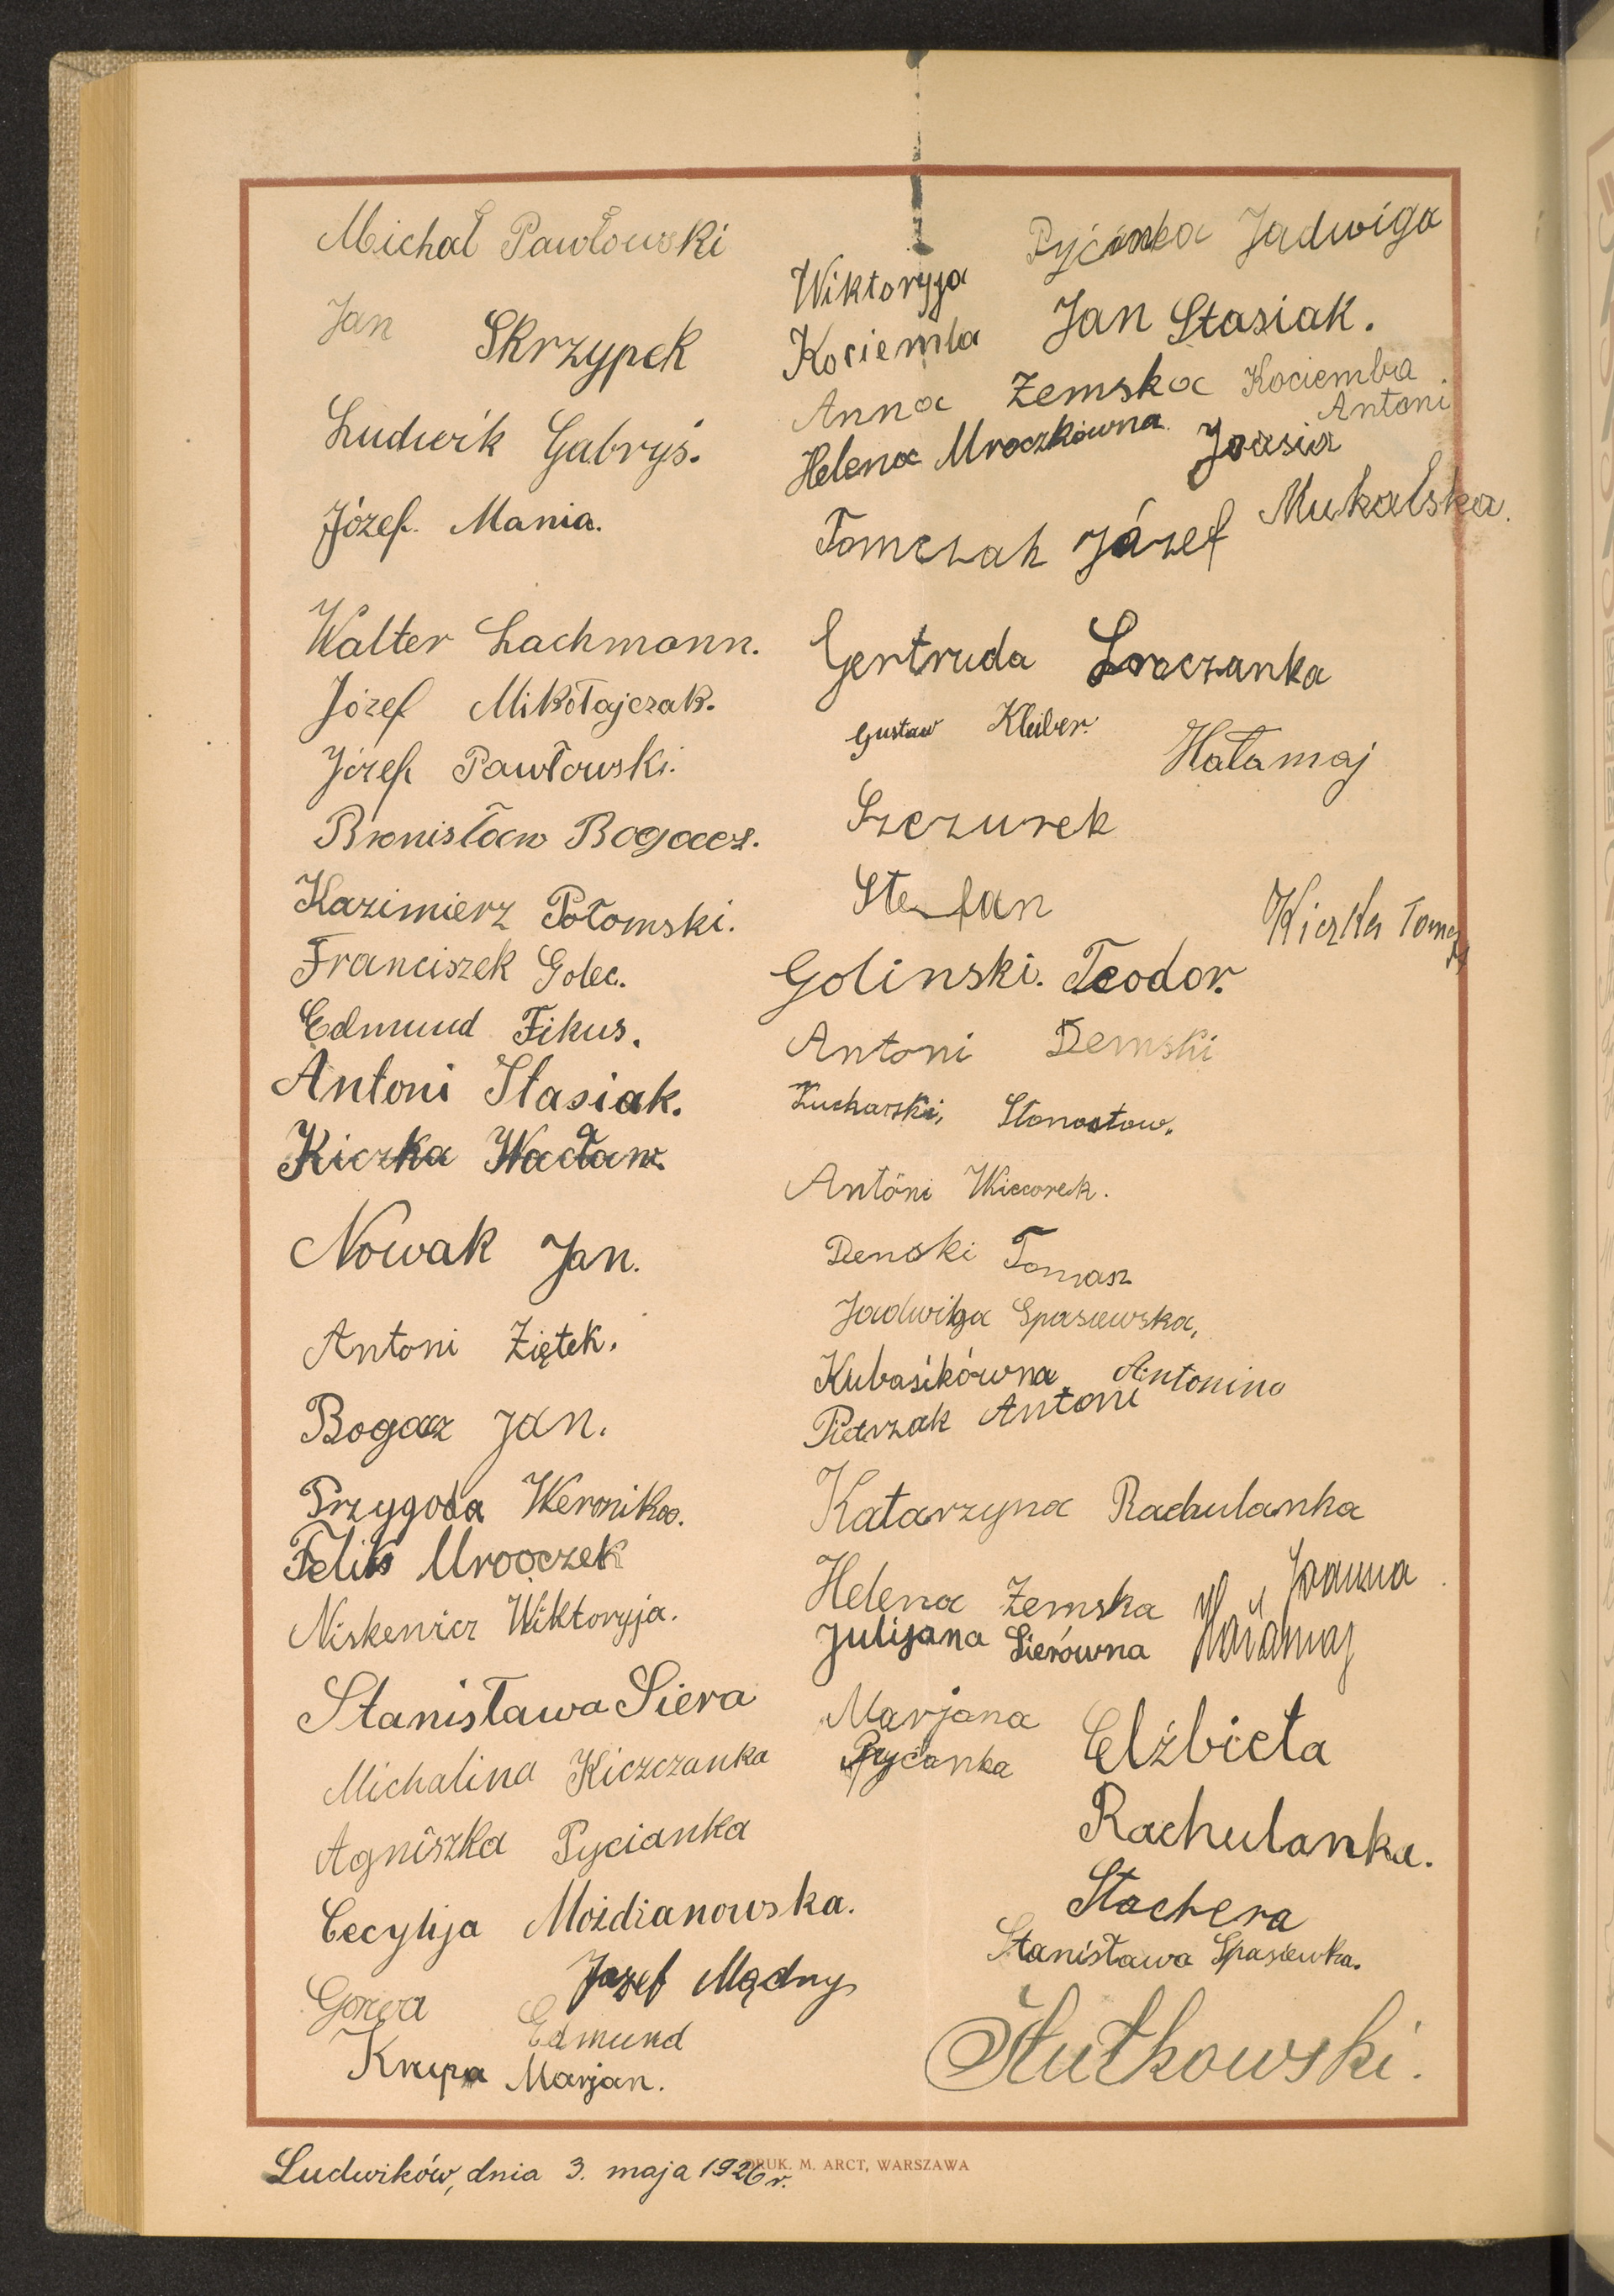 Michał Pawłowski
Jan Skrzypek
Ludwik Gabryś.
Józef. Mania.
Walter Lachmann.
Józef Mikołajczak.
Józef Pawłowski.
Bronisław Bogacz.
Kazimierz Połomski.
Franciszek Golec.
Edmund Fikus.
Antoni Stasiak.
Kiczka Wacław.
Nowak Jan.
Antoni Ziętek.
Bogacz Jan.
Przygoda Weronika.
Feliks Mroczek
Niskewicz Wiktoryja.
Stanisława Siera
Michalina Kiczczanka
Agniszka Pycianka
Cecylija Możdzianowska.
Józef Mądry
Edmund
Krupa Marjan.
Pyćanka Jadwiga
Wiktoryja
Kociemba
Jan Stasiak.
Anna Zemska
Kociemba
Antoni
Helena Mroczkówna.
Joasia
Mukalska.
Tomczak Józef
Gertruda
Gustaw Kleiber.
Hałamaj
Szczurek
Stefan
Kiczka Tomasz
Golinski. Teodor.
Antoni Demski
Antoni
Demski Tomasz
Jadwiga Spasiewska,
Kubasikówna Antonina
Pietrzak Antoni
Katarzyna Rachulanka
Helena Zemska
Joanna
Hałamaj
Julijana Sierówna
Marjana
Pyćanka
Elżbieta
Rachulanka.
Stachera
Stanisława Spasiewka.
Rutkowski.
Ludwików, dnia 3. maja 1926 r.
DRUK. M. ARCT, WARSZAWA